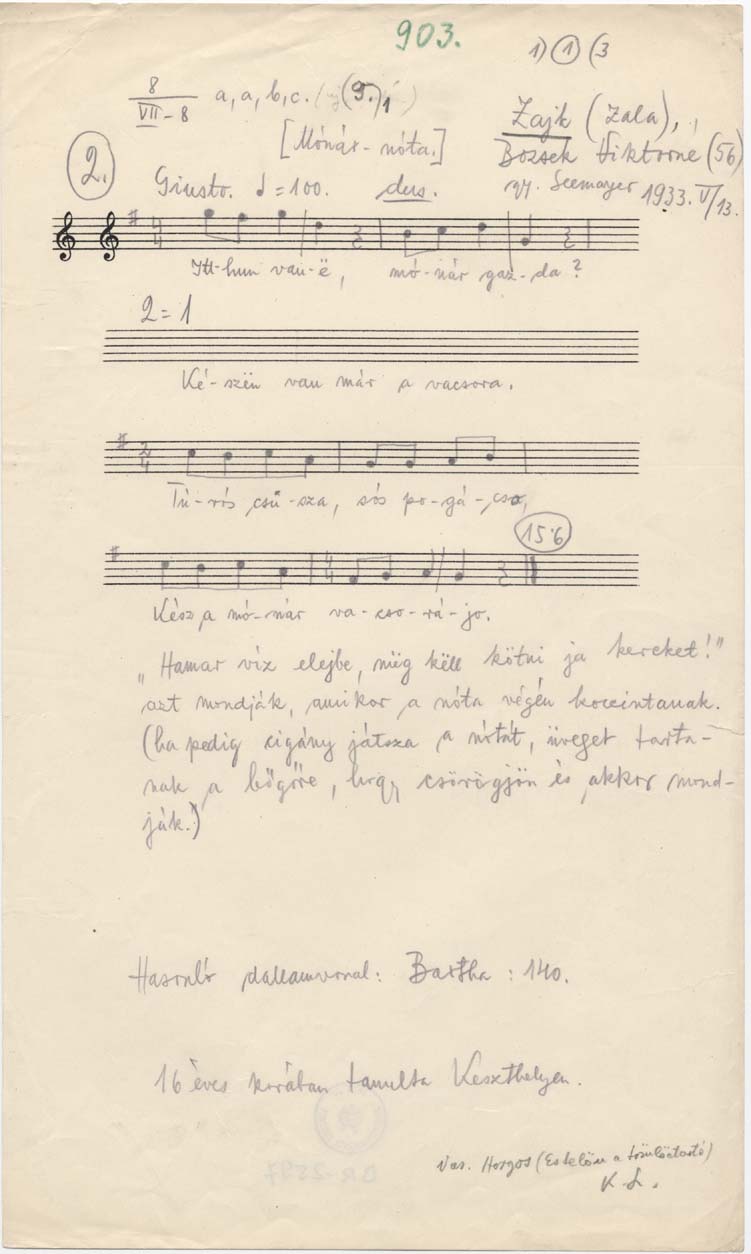 903.
1) 1 (3
8
VII-8 a, a, b, c. (9.)1
[Mónár-nóta.] Zajk (Zala),
2. Bozsek Viktorné (56)
Giusto. ♩=100. dus. gy. Seemayer 1933. V/13.
Itt-hun van-ë, mó-nár gaz-da?
2=1
Ké-szën van már a vacsora.
Tú-rós csú-sza, sós po-gá-cso,
15·6
Kész a mó-nár va-cso-rá-jo.
"Hamar víz elejbe, mëg këll kötni ja kereket!"
azt mondják, amikor a nóta végén koccintanak.
(ha pedig cigány játsza a nótát, üveget tarta-
nak a bőgőre, hogy csörögjön és akkor mond-
ják.)
Hasonló dallamvonal: Bartha: 140.
16 éves korában tanulta Keszthelyen.
Var. Horgos (Estelöm a
K. L.
BR-